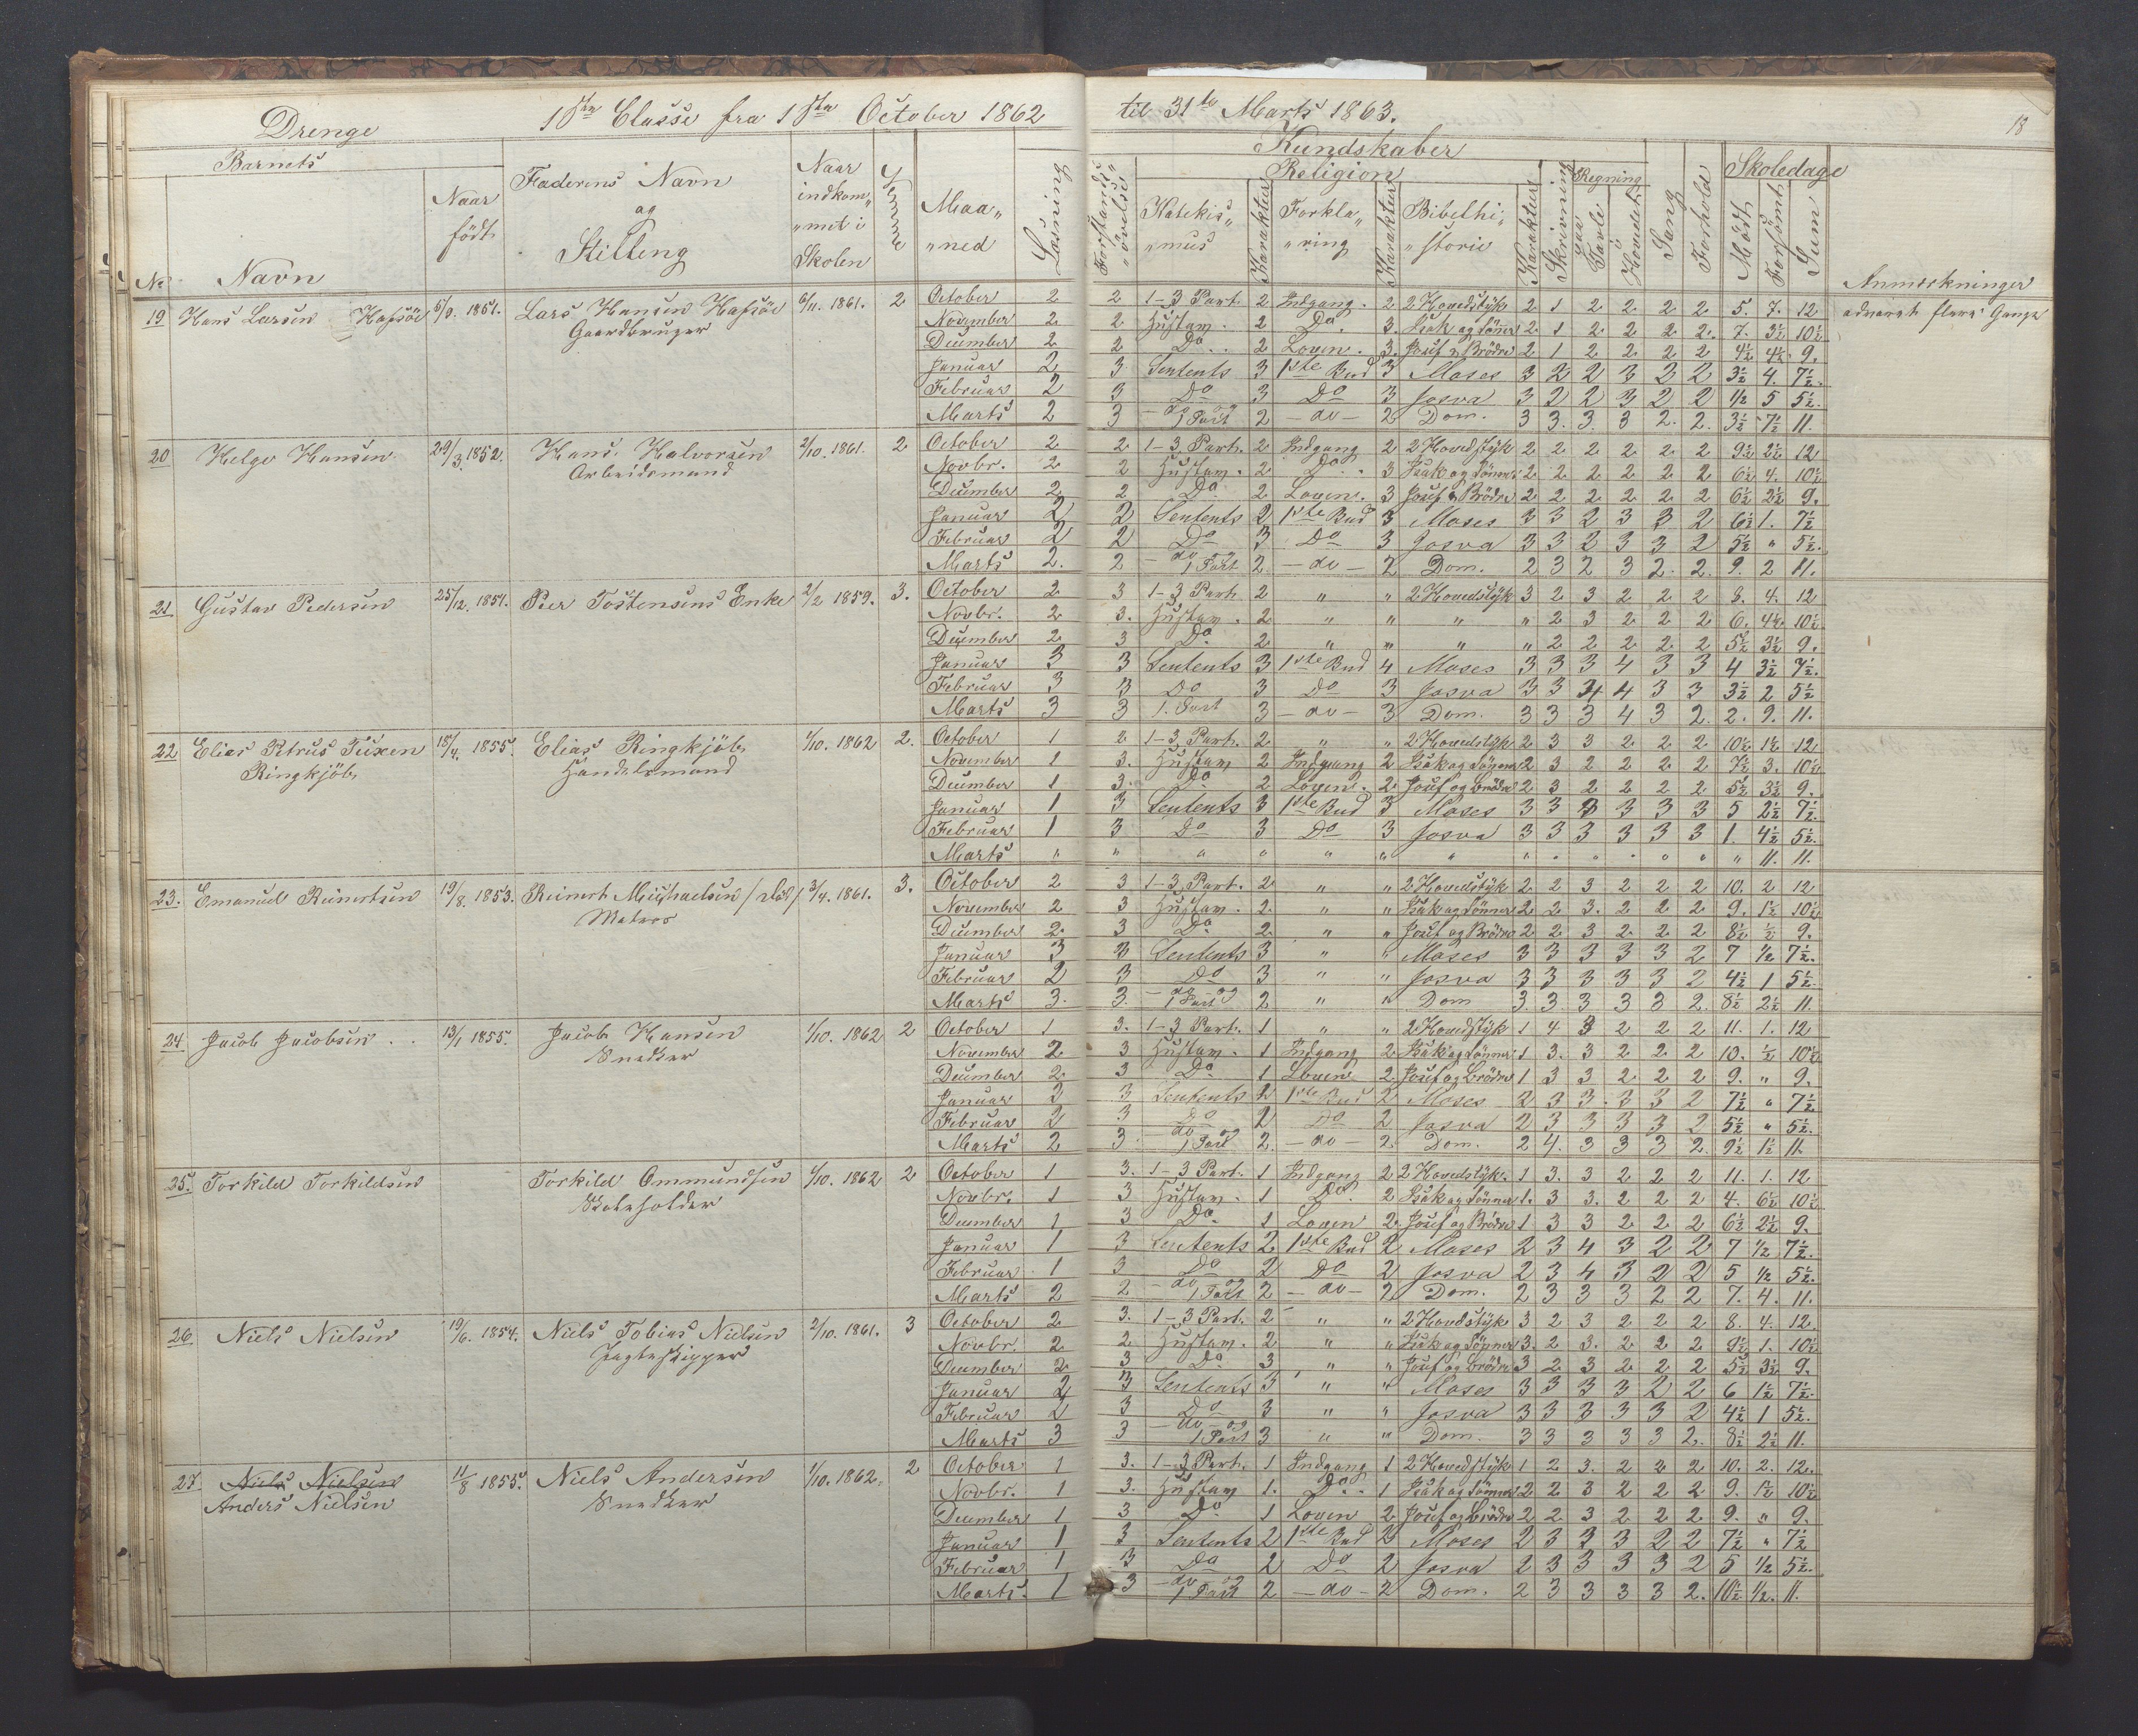 Drenge 1ste Classe fra 1ste October 1862 til 31te Marts 1863. 18
Barnets Faderens Navn og Stilling Naar indkommet i Skolen Evne Maaned Læsning Forstandsøvelse Kundskaber Skoledage
No Navn Naar født Religion Katekismus Karakter Forklaring Karakter Bibelhistorie Karakter Skrivning Regning paa Tavle Hovedet Sang Forhold Mødt Forsømt Sum Anmerkninger
19 Hans Larsen Hafsöe 5/9. 1851. Lars Hansen Hafsöe 6/11. 1861. 2 October 2 2 1-3 Part. 2 Indgang. 2 2 Hovedstyk 2 1 2 2 2 2 5. 7. 12 advaret flere Gange
Gaardbruger November 2 2 Hustavn. 2 Do. 3. Isak og Sönner 2 1 2 2 2 2. 7. 3½ 10½
December 2 2 Do. 2 Loven. 3. Josef & Brödre 2 1 2 2 2 2 4½ 4½ 9.
Januar 2 3 Sentents 3 1ste Bud 3 Moses 3 2 2 3 2 2 3½ 4. 7½.
Februar 2 3 Do 3 Do 3 Josva 3 2 2 3 2 2 ½ 5 5½.
Marts 2 3 - do og 1 Part 2 - do - 2 Dom. 3 3. 3. 3 2. 2. 3½ 7½ 11.
20 Helge Hansen 29/3. 1852. Hans Halvorsen 2/10. 1861. 2 October 2 2 1-3 Part. 2 Indgang 2 2 Hovedstyk 2 2 2 2 2 2 9½ 2½ 12
Arbeidsmand Novbr. 2 2 Hustavn. 2 Do. 3 Isak og Sönner 2 2 2 2 2 2 6½ 4. 10½
December 2 2 Do. 2 Loven. 3 Josef & Brödre 2 2 2 2 2 2 6½ 2½ 9.
Januar 2 2 Sentents 2 1ste Bud 3 Moses 3 3 2 3 3 2 6½ 1. 7½
Februar 2 2 Do 3 Do 3 Josva 3 3 2 3 3 2 5½ " 5½.
Marts 2. 2 - do og 1 Part 2 - do - 2 Dom. 2 3 2 3 2. 2. 9. 2 11.
21 Gustav Pedersen 25/12. 1851. Peer Tostensens Enke 2/2 1859. 3. October 2 3 1-3 Part 2 " " 2 Hovedstyk 3 2 3 2 2 2 8. 4. 12
Novbr. 2 3. Hustavn. 2 " " " " 2 3 2 2 2 6. 4½. 10½
December 2 3 Do. 2 " " " " 2 2 2 2 2 5½ 3½ 9.
Januar 3 3 Sentents 3 1ste Bud 4 Moses 3 3 3 4 3 3 4 3½ 7½.
Februar 3 3 Do 3 Do 3 Josva 3 3 4 4 3 3 3½ 2 5½
Marts 3 3 1. Part 3 - do - 3 Dom. 3 3 3 4 3 2. 2. 9. 11.
22 Elias Petrus Tuxen 18/4. 1855. Elias Ringkjöb 1/10. 1862 2. October 1 2 1-3 Part. 2 " " 2 Hovedstyk 2 3 3 2 2 2 10½ 1½ 12
Ringkjöb Handelsmand November 1 3. Hustavn 2 Indgang 2 Isak og Sönner 2 3 2 2 2 2 7½ 3. 10½
December 1 3. Do. 2 Loven. 2 Josef og Brödre 2 3 2 2 2 2 5½ 3½ 9.
Januar 1 3 Sentents 3 1ste Bud 3 Moses 3 3 3 3 3 3 5 2½ 7½.
Februar 1 3 Do 3 Do 3 Josva 3 3 3 3 3 3 1. 4½ 5½.
Marts " " " " " " " " " " " " " " 11. 11.
23. Emanuel Reinertsen 19/8. 1853. Reinert Michaelsen / död / 3/4. 1861. 3. October 2 3 1-3 Part. 2 " " 2 Hovedstyk 2 2 3 2 2 2 10. 2 12
Matros November 2 3 Hustavn. 2. " " Isak og Sönner 2 2 3. 2 2 2 9. 1½ 10½
December 2. 3 Do. 2 " " Josef og Brödre 2 2 3 2 2 2 8½ ½ 9.
Januar 3 3 Sentents 3 " " Moses 3 3 3 3 3 2 7 ½ 7½.
Februar 2 3 Do 3 " " Josva 3 3 3 3 3 2 4½ 1 5½
Marts 3. 3. - do - og 1 Part 2 " " Dom 3. 3. 3 3 3 2. 8½ 2½ 11.
24 Jacob Jacobsen 13/1 1855. Jacob Hansen 1/10. 1862 2 October 1 3. 1-3 Part. 1 " " 2 Hovedstyk 1 4 3 2 2 2 11. 1. 12
Snedker November 2 3 Hustavn. 1 Indgang 2 Isak og Sönner 1 3. 3 2 2 2 10. ½ 10½
December 2. 3 Do. 1 Loven 2. Josef og Brödre 1 3 3 2 2 2 9. " 9.
Januar 2 3 Sentents 2 1ste Bud 2 Moses 2 3 3. 3 3 2 7½ " 7½
Februar 2 3 Do 2 Do 2 Josva 2 3 3 3 3 2 5½ " 5½.
Marts 2 3 - do og 1 Part 2. - do - 2. Dom. 2 4. 3 3 3 2. 9½ 1½ 11.
25. Torkild Torkildsen Torkild Ommundsen 1/10. 1862 2 October 1 3. 1-3 Part. 1 Indgang 2 2 Hovedstyk. 1 3. 3 2 2 2 11. 1. 12
Skoleholder Novbr. 1 3 Hustavn. 1 Do. 2 Isak og Sönner 1. 3 3. 2 2 2 4. 6½ 10½
December 1 3 Do. 1 Loven 2. Josef og Brödre 1 3 3 2 2 2 6½ 2½ 9.
Januar 1 3 Sentents 2 1ste Bud 2 Moses 2 3 4 3 2 2 7 ½ 7½.
Februar 1 3 Do 2 Do 2 Josva 2 3 4 3 2 2 5 ½ 5½.
Marts 2 2 - do og 1 Part 2 - do - 2 Dom. 2 3 3 3 2 2 7. 4. 11.
26 Niels Nielsen 19/6. 1854. Niels Tobias Nielsen 2/10. 1861. 3 October 2 3. 1-3 Part. 2 " " 2 Hovdstyk 3 2 3 2 2 2 8. 4. 12.
Jagteskipper Novbr. 2 2. Hustavn. 2 " " Isak og Sönner 3. 2 3. 2 2 2 9½ 1. 10½
December 2. 3 Do. 3 " " Josef og Brödre 3 2 3 2 2 2 5½ 3½ 9.
Januar 2 3 Sentents 3 " " Moses 3 3 3 3 2 2 6 1½ 7½.
Februar 2 3 Do 3 " " Josva 3 3 3 3 3 2 4½ 1 5½.
Marts 3 3 - do - og 1 Part 3 " " Dom. 3 3 3 3 3 2. 8½ 2½ 11.
27. Niels Nielsen 11/8 1855. Niels Andersen 1/10. 1862. 2 October 1 3. 1-3 Part. 1 Indgang 1 2 Hovedstyk 1 2 3. 2 2 2 10. 2. 12.
Anders Nielsen Snedker Novbr. 1 3. Hustavn 1. Do. 1 Isak og Sönner 2 2 3 2 2 2 9. 1½ 10½
December 1 3 Do. 1 Loven 2 Josef og Brödre 2 2 3 2 2 2 9. " 9.
Januar 1 3 Sentents 2 1ste Bud 2 Moses 2 3 3 3 2 2 7½ " 7½
Februar 1 3 Do 2 Do 2 Josva 2 3 3 3 3 2 5 ½ 5½.
Marts. 1 3 - do og 1 Part 2 - do - 2 Dom. 2 3 3 3 3 2. 10½. ½. 11.